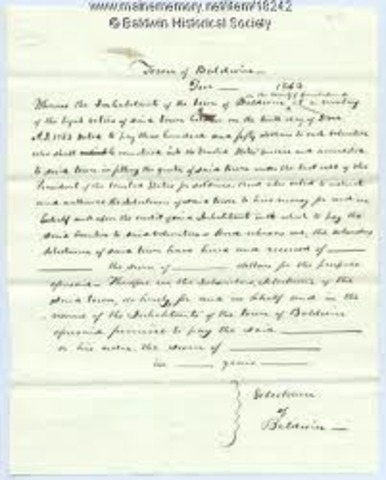 www.mainememory.net/item/18242
© Baldwin Historical Society
Town of Baldwin
1863
in the County of Cumberland
Whereas the Inhabitants of the Town of Baldwin at a meeting
of the legal voters of said Town on the tenth day of
A.D. 1863 voted to pay three hundred and fifty dollars to each volunteer
who shall be mustered into the United States service and
to said town in filling the quota of said town under the last call of the
President of the United States for and also voted to
and authorize the Selectmen of said town to hire money for and in
behalf and upon the credit of said Inhabitants with which to pay the
said to said volunteers And whereas we, the
Selectmen of said town have hired and received of
the sum of dollars for the purpose
aforesaid Therefore we the Subscribers, Selectmen of the
said Town, do hereby for and in behalf and in the
name of the Inhabitants of the Town of Baldwin
aforesaid promise to pay the said
or his order the sum of
in years
Selectmen
of
Baldwin